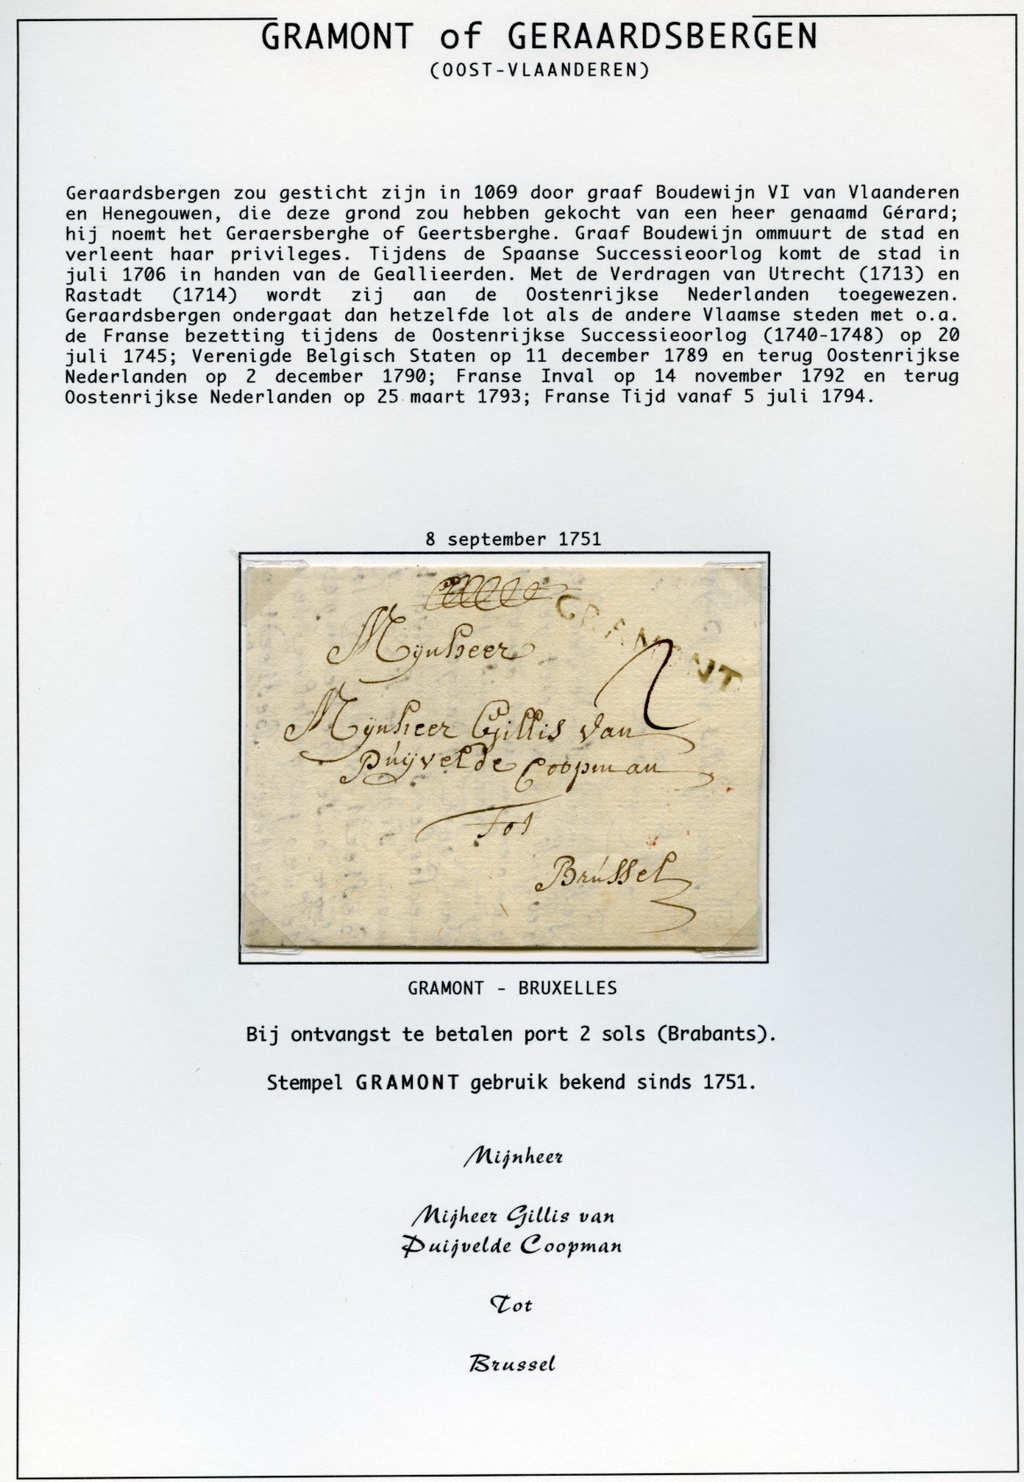 GRAMONT of GERAARDSBERGEN
(OOST-VLAANDEREN)
Geraardsbergen zou gesticht zijn in 1069 door graaf Boudewijn VI van Vlaanderen
en Henegouwen, die deze grond zou hebben gekocht van een heer genaamd Gérard;
hij noemt het Geraersberghe of Geertsberghe. Graaf Boudewijn ommuurt de stad en
verleent haar privileges. Tijdens de Spaanse Successieoorlog komt de stad in
juli 1706 in handen van de Geallieerden. Met de Verdragen van Utrecht (1713) en
Rastadt (1714) wordt zij aan de Oostenrijkse Nederlanden toegewezen.
Geraardsbergen ondergaat dan hetzelfde lot als de andere Vlaamse steden met o.a.
de Franse bezetting tijdens de Oostenrijkse Successieoorlog (1740-1748) op 20
juli 1745; Verenigde Belgisch Staten op 11 december 1789 en terug Oostenrijkse
Nederlanden op 2 december 1790; Franse Inval op 14 november 1792 en terug
Oostenrijkse Nederlanden op 25 maart 1793; Franse Tijd vanaf 5 juli 1794.
8 september 1751
GRAMONT
Mynheer
2
Mÿnheer Gillis Van
Puÿvelde Coopman
Tot
Brussel
GRAMONT - BRUXELLES
Bij ontvangst te betalen port 2 sols (Brabants).
Stempel GRAMONT gebruik bekend sinds 1751.
Mijnheer
Mijheer Gillis van
Puijvelde Coopman
Tot
Brussel